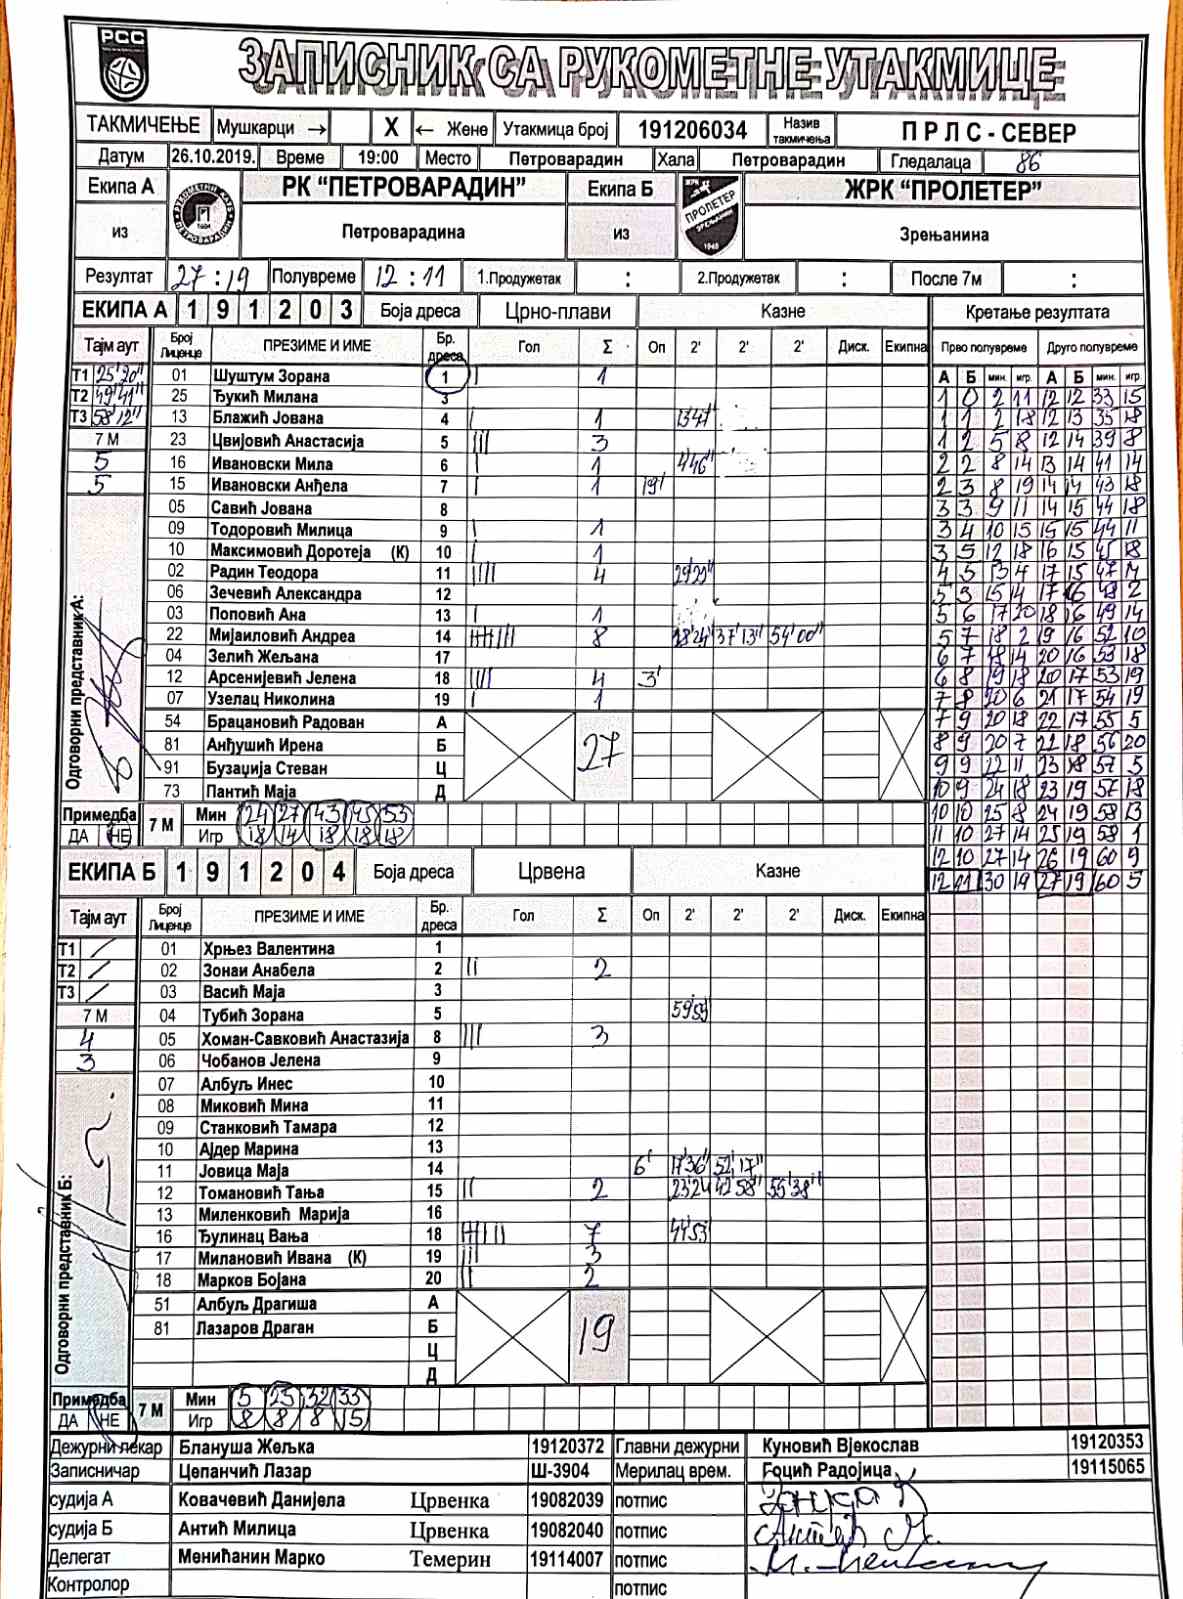 РСС
ЗАПИСНИК СА РУКОМЕТНЕ УТАКМИЦЕ
ТАКМИЧЕЊЕ Мушкарци → X ← Жене Утакмица број 191206034 Назив такмичења П Р Л С - СЕВЕР
Датум 26.10.2019. Време 19:00 Место Петроварадин Хала Петроварадин Гледалаца 86
Екипа А РК "ПЕТРОВАРАДИН" Екипа Б ЖРК "ПРОЛЕТЕР"
из Петроварадина из Зрењанина
Резултат 27 : 19 Полувреме 12 : 11 1.Продужетак : 2.Продужетак : После 7м :
ЕКИПА А 1 9 1 2 0 3 Боја дреса Црно-плави Казне Кретање резултата
Тајм аут Број Лиценце ПРЕЗИМЕ И ИМЕ Бр. дреса Гол Σ Оп 2' 2' 2' Диск. Екипна Прво полувреме Друго полувреме
А Б мин. игр. А Б мин. игр.
Т1 25'20" 01 Шуштум Зорана 1 | 1
1 0 2 11 12 12 33 15
Т2 49'41" 25 Ђукић Милана 3
1 1 2 18 12 13 35 18
Т3 58'12" 13 Блажић Јована 4 | 1 13'47"
1 2 5 8 12 14 39 8
7 М 23 Цвијовић Анастасија 5 ||| 3
2 2 8 14 13 14 41 14
5 16 Ивановски Мила 6 | 1 4'46"
2 3 8 19 14 14 43 18
5 15 Ивановски Анђела 7 | 1 19'
3 3 9 11 14 15 44 18
05 Савић Јована 8
3 4 10 15 15 15 44 11
09 Тодоровић Милица 9 | 1
3 5 12 18 16 15 45 18
10 Максимовић Доротеја (К) 10 | 1
4 5 13 4 17 15 47 14
02 Радин Теодора 11 |||| 4 29'29"
5 5 15 14 17 16 48 2
06 Зечевић Александра 12
5 6 17 20 18 16 49 14
03 Поповић Ана 13 | 1
5 7 18 2 19 16 52 10
22 Мијаиловић Андреа 14 8 18'24" 37'13" 54'00"
6 7 18 14 20 16 53 18
04 Зелић Жељана 17
6 8 19 18 20 17 53 19
12 Арсенијевић Јелена 18 |||| 4 3'
7 8 20 6 21 17 54 19
07 Узелац Николина 19 | 1
7 9 20 18 22 17 55 5
54 Брацановић Радован А
8 9 20 7 22 18 56 20
81 Анђушић Ирена Б 27
9 9 22 11 23 18 57 5
91 Бузаџија Стеван Ц
10 9 24 18 23 19 57 18
73 Пантић Маја Д
10 10 25 8 24 19 58 13
Одговорни представник А:
11 10 27 14 25 19 58 1
Примедба ДА НЕ 7 М Мин 24 27 43 45 53
12 10 27 14 26 19 60 9
Игр 18 14 18 18 18
12 11 30 19 27 19 60 5
ЕКИПА Б 1 9 1 2 0 4 Боја дреса Црвена Казне
Тајм аут Број Лиценце ПРЕЗИМЕ И ИМЕ Бр. дреса Гол Σ Оп 2' 2' 2' Диск. Екипна
Т1 / 01 Хрњез Валентина 1
Т2 / 02 Зонаи Анабела 2 || 2
Т3 / 03 Васић Маја 3
7 М 04 Тубић Зорана 5 59'59"
4 05 Хоман-Савковић Анастазија 8 ||| 3
3 06 Чобанов Јелена 9
07 Албуљ Инес 10
08 Миковић Мина 11
09 Станковић Тамара 12
10 Ајдер Марина 13
11 Јовица Маја 14 6' 17'36" 52'17"
12 Томановић Тања 15 || 2 23'24" 42'58" 55'38"
13 Миленковић Марија 16
16 Ђулинац Вања 18 7 44'53"
17 Милановић Ивана (К) 19 ||| 3
18 Марков Бојана 20 || 2
51 Албуљ Драгиша А
81 Лазаров Драган Б 19
Ц
Д
Одговорни представник Б:
Примедба ДА НЕ 7 М Мин 5 25 32 33
Игр 8 8 8 15
Дежурни лекар Блануша Жељка 19120372 Главни дежурни Куновић Вјекослав 19120353
Записничар Цепанчић Лазар Ш-3904 Мерилац врем. Гоцић Радојица 19115065
судија А Ковачевић Данијела Црвенка 19082039 потпис
судија Б Антић Милица Црвенка 19082040 потпис
Делегат Менићанин Марко Темерин 19114007 потпис
Контролор потпис